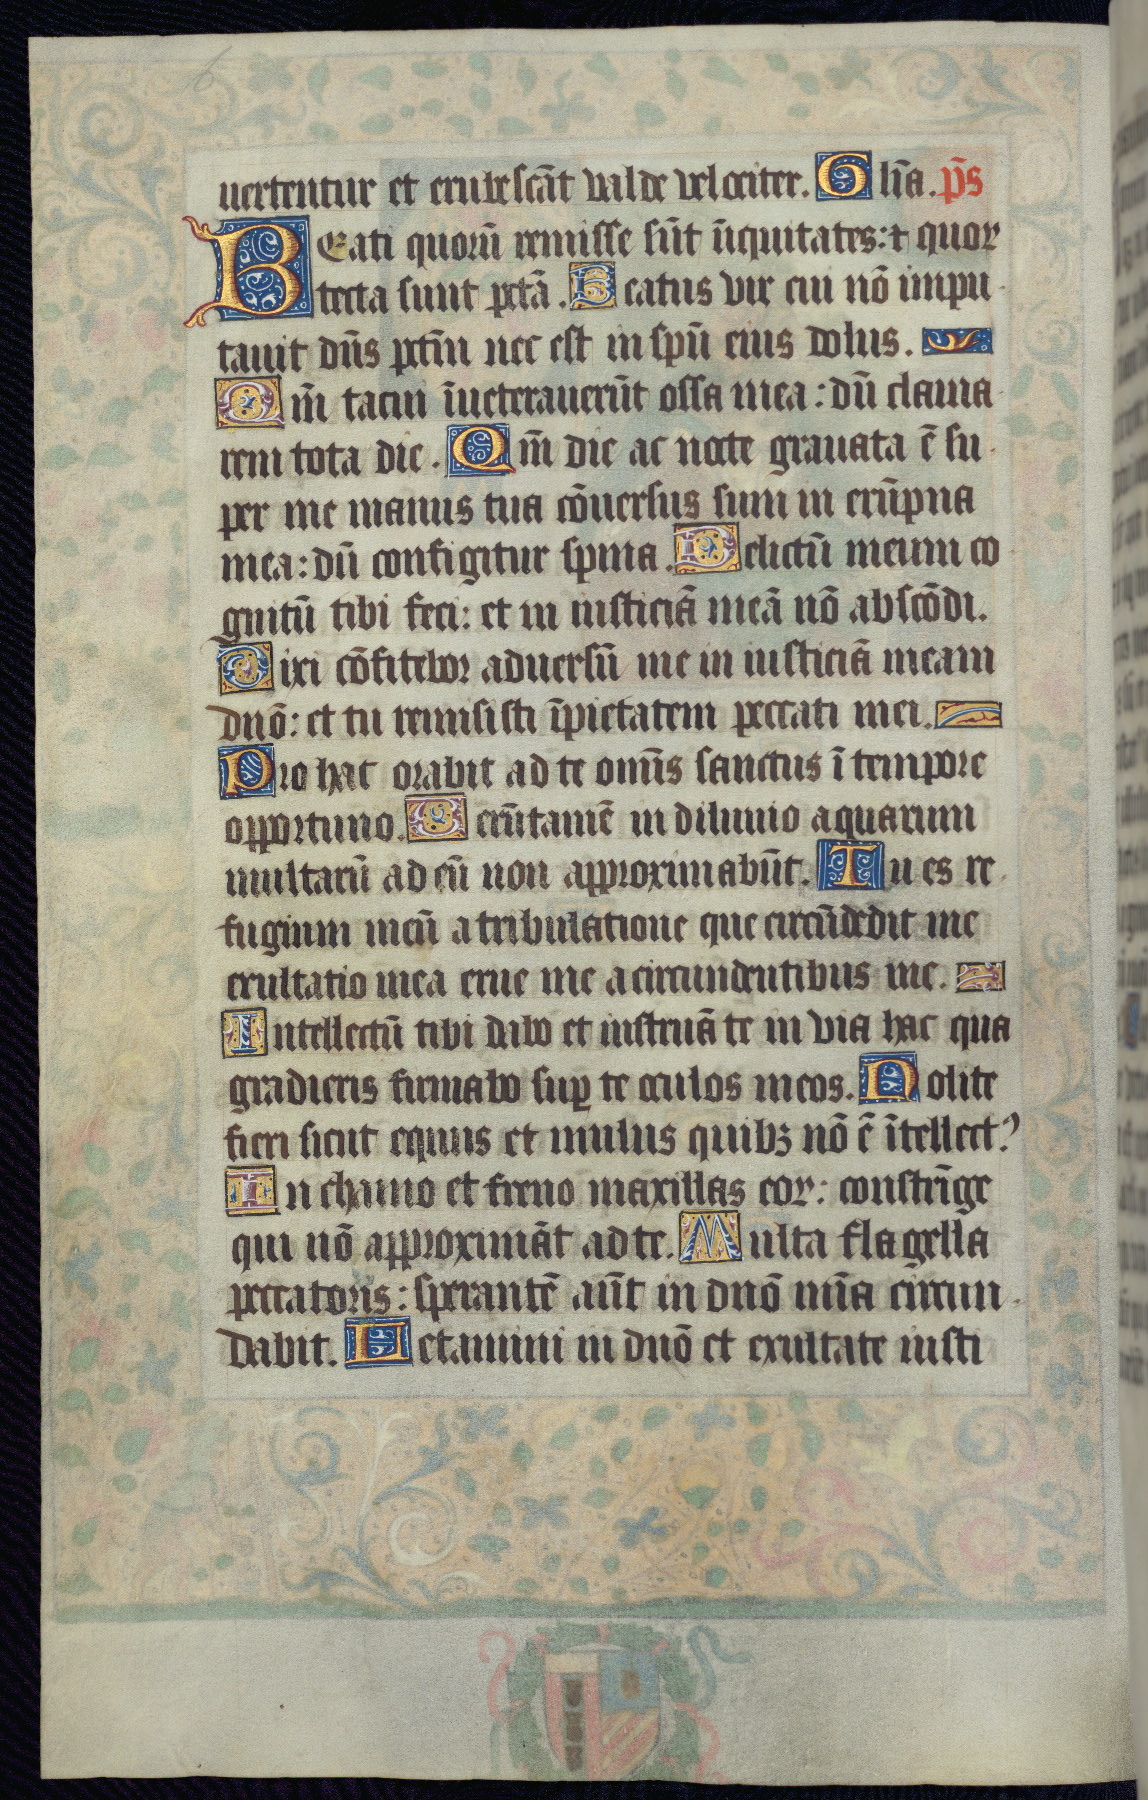 uertentur et erubescāt valde velociter. Glīa. p̄s
Beati quorū remisse sūt īiquitates: ⁊ quoꝝ
tecta sunt pctā. Beatus vir cui nō impu
tauit dn̄s pctm̄ nec est in spū eius dolus.
Qm̄ tacui īueterauerūt ossa mea: dū clama
rem tota die. Qm̄ die ac nocte grauata ē su
per me manus tua cōuersus sum in erūpna
mea: dū configitur spina. Delictū meum co
gnitū tibi feci: et in iusticiā meā nō abscōdi.
Dixi cōfitebor aduersū me in iusticiā meam
dnō: et tu remisisti īpietatem peccati mei.
Pro hac orabit ad te omīs sanctus ī tempore
opportuno. Uerūtamē in diluuio aquarum
multarū ad eū non approximabūt. Tu es re
fugium meū a tribulatione que circūdedit me
exultatio mea erue me a circundentibus me.
Intellectū tibi dabo et instruā te in via hac qua
gradieris firmabo suꝑ te oculos meos. Nolite
fieri sicut equus et mulus quibꝫ nō ē ītellect᾽
In chamo et freno maxillas eoꝝ: constrīge
qui nō approximāt ad te. Multa flagella
peccatoris: sperantē aūt in dnō mīa circun
dabit. Letamini in dnō et exultate iusti